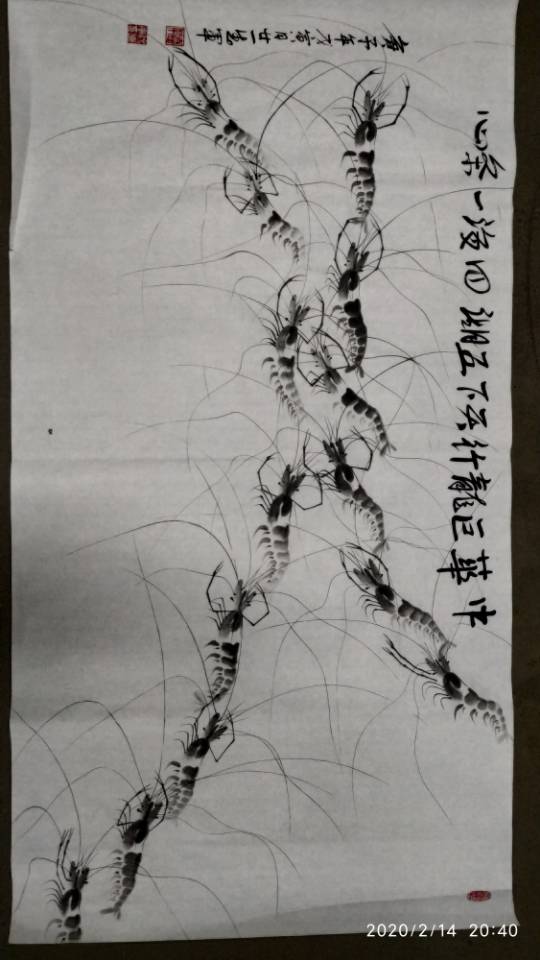 中華巨龍行天下五湖四海一条心
庚子年戊寅月廿一
2020/2/14 20:40